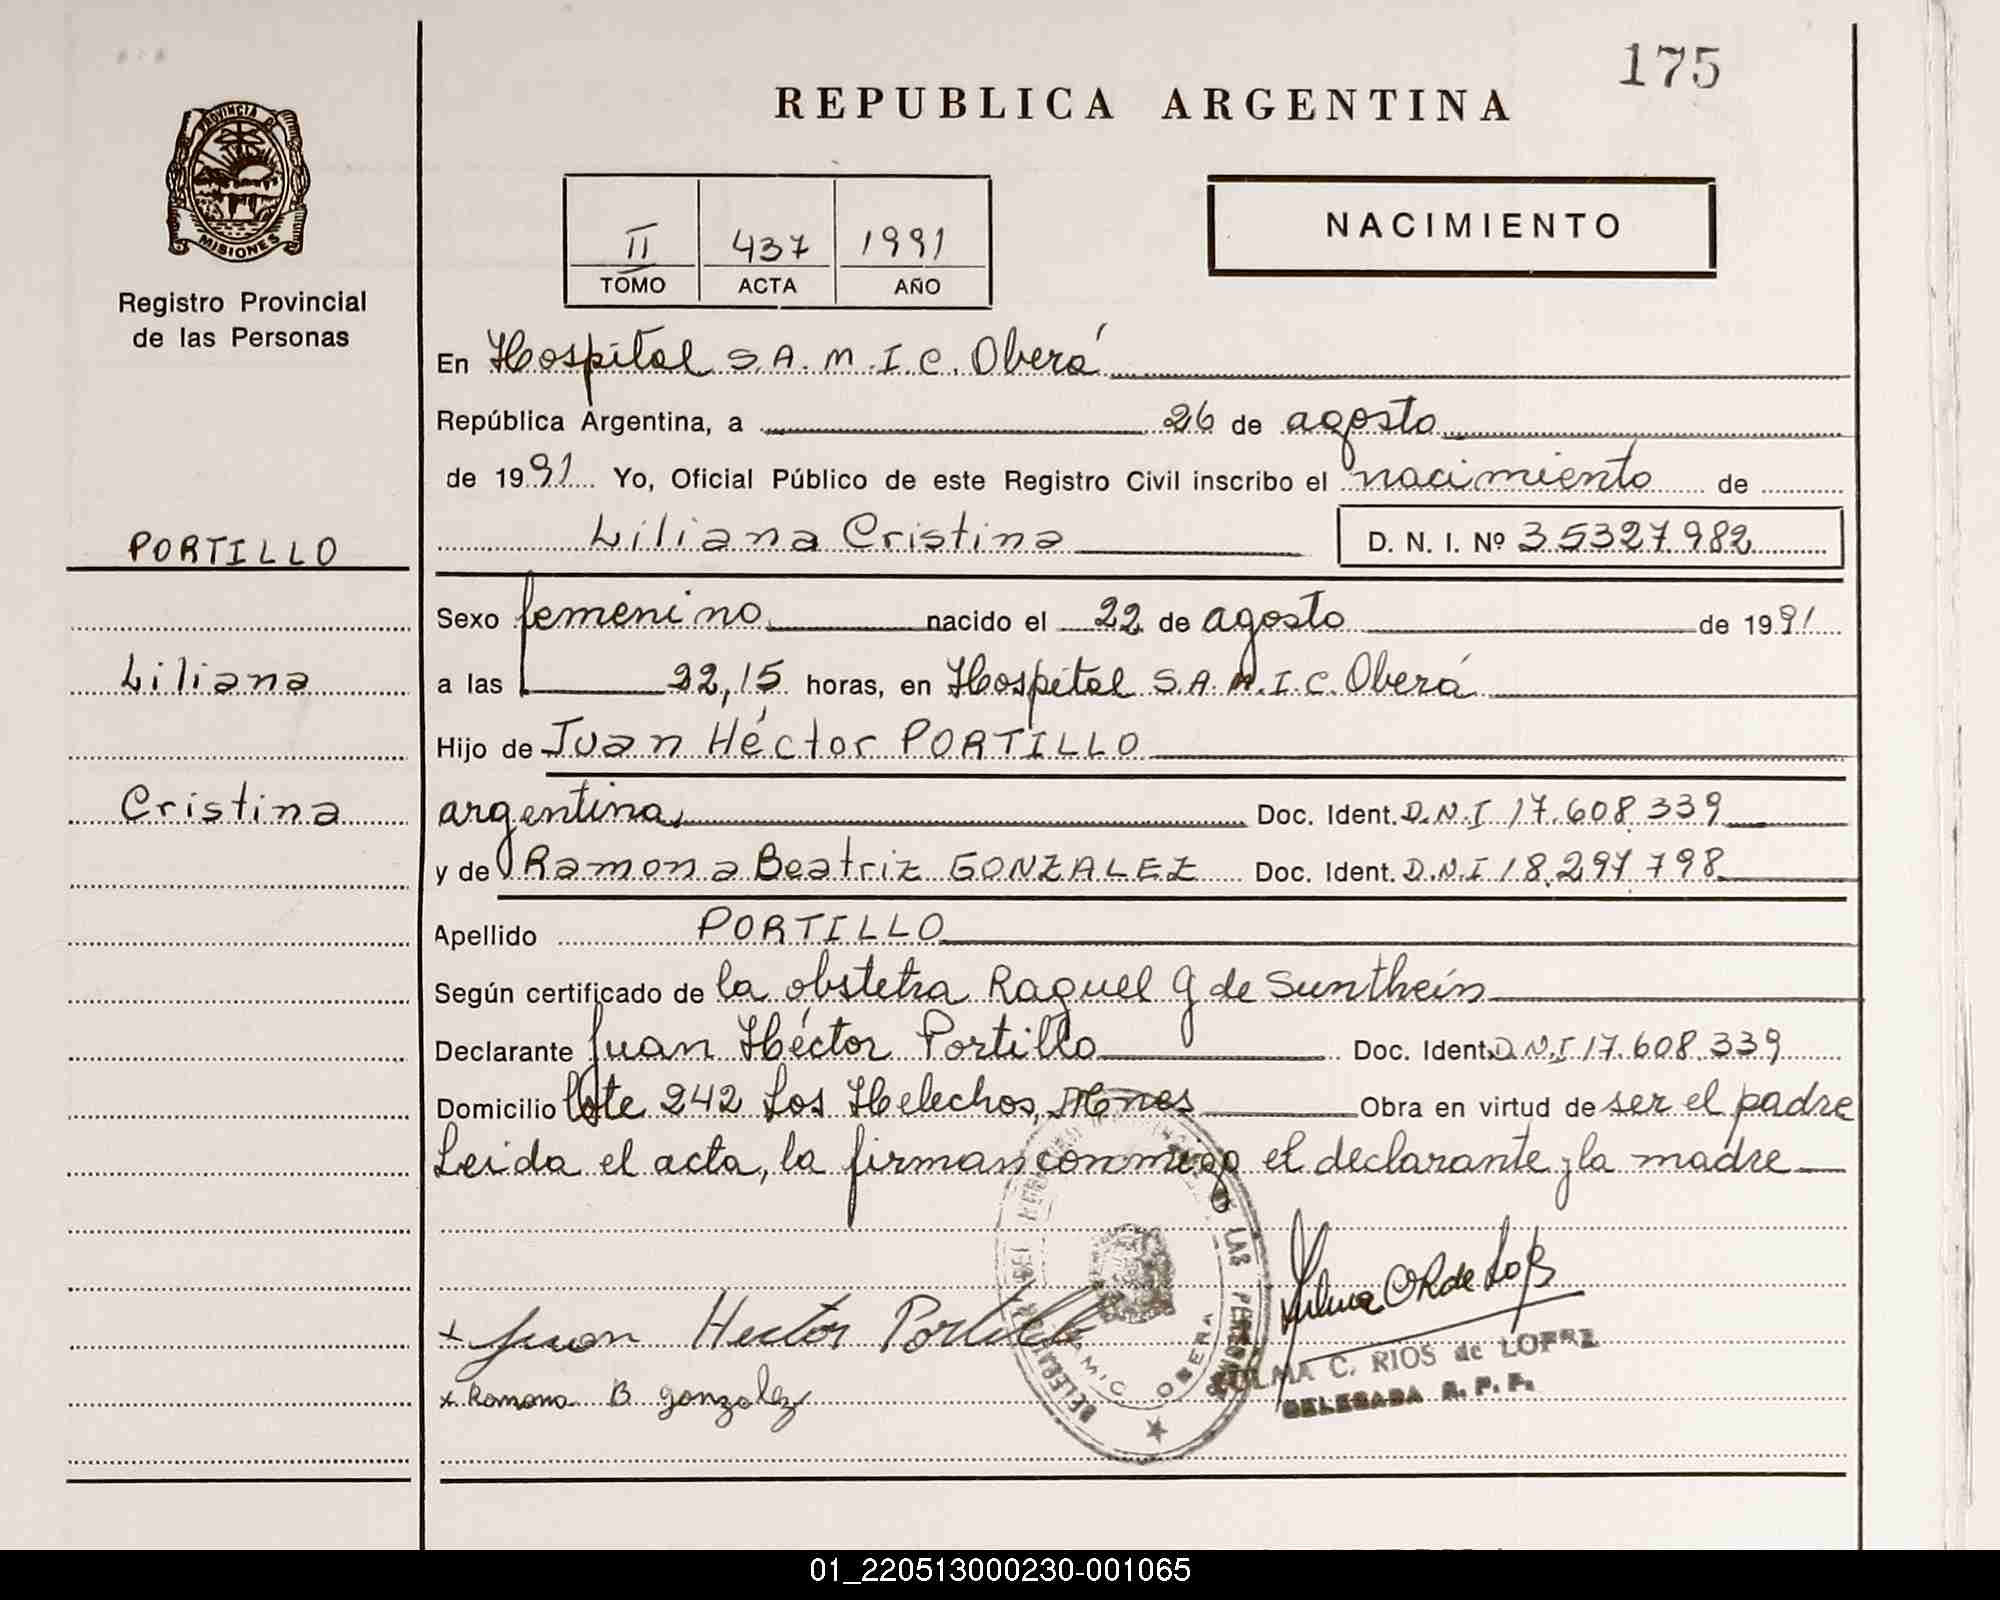 175
REPUBLICA ARGENTINA
PROVINCIA DE
MISIONES
Registro Provincial
de las Personas
II 437 1991
TOMO ACTA AÑO
NACIMIENTO
En Hospital S.A.M.I.C. Oberá
República Argentina, a 26 de agosto
de 1991 Yo, Oficial Público de este Registro Civil inscribo el nacimiento de
Liliana Cristina D. N. I. Nº 35327982
PORTILLO
Liliana
Cristina
Sexo femenino nacido el 22 de agosto de 1991
a las 22,15 horas, en Hospital S.A.M.I.C. Oberá
Hijo de Juan Héctor PORTILLO
argentina Doc. Ident. D.N.I 17.608.339
y de Ramona Beatriz GONZALEZ Doc. Ident. D.N.I 18.297.798
Apellido PORTILLO
Según certificado de la obstetra Raquel G de Sunthein
Declarante Juan Héctor Portillo Doc. Ident. D.N.I 17.608.339
Domicilio lote 242 Los Helechos, Mnes Obra en virtud de ser el padre
Leida el acta, la firman conmigo el declarante y la madre
x Juan Hector Portillo
x Ramona B. gonzalez
LAS PERSONAS
OBERA
C. RIOS de LOPEZ
DELEGADA R. P. P.
01_220513000230-001065